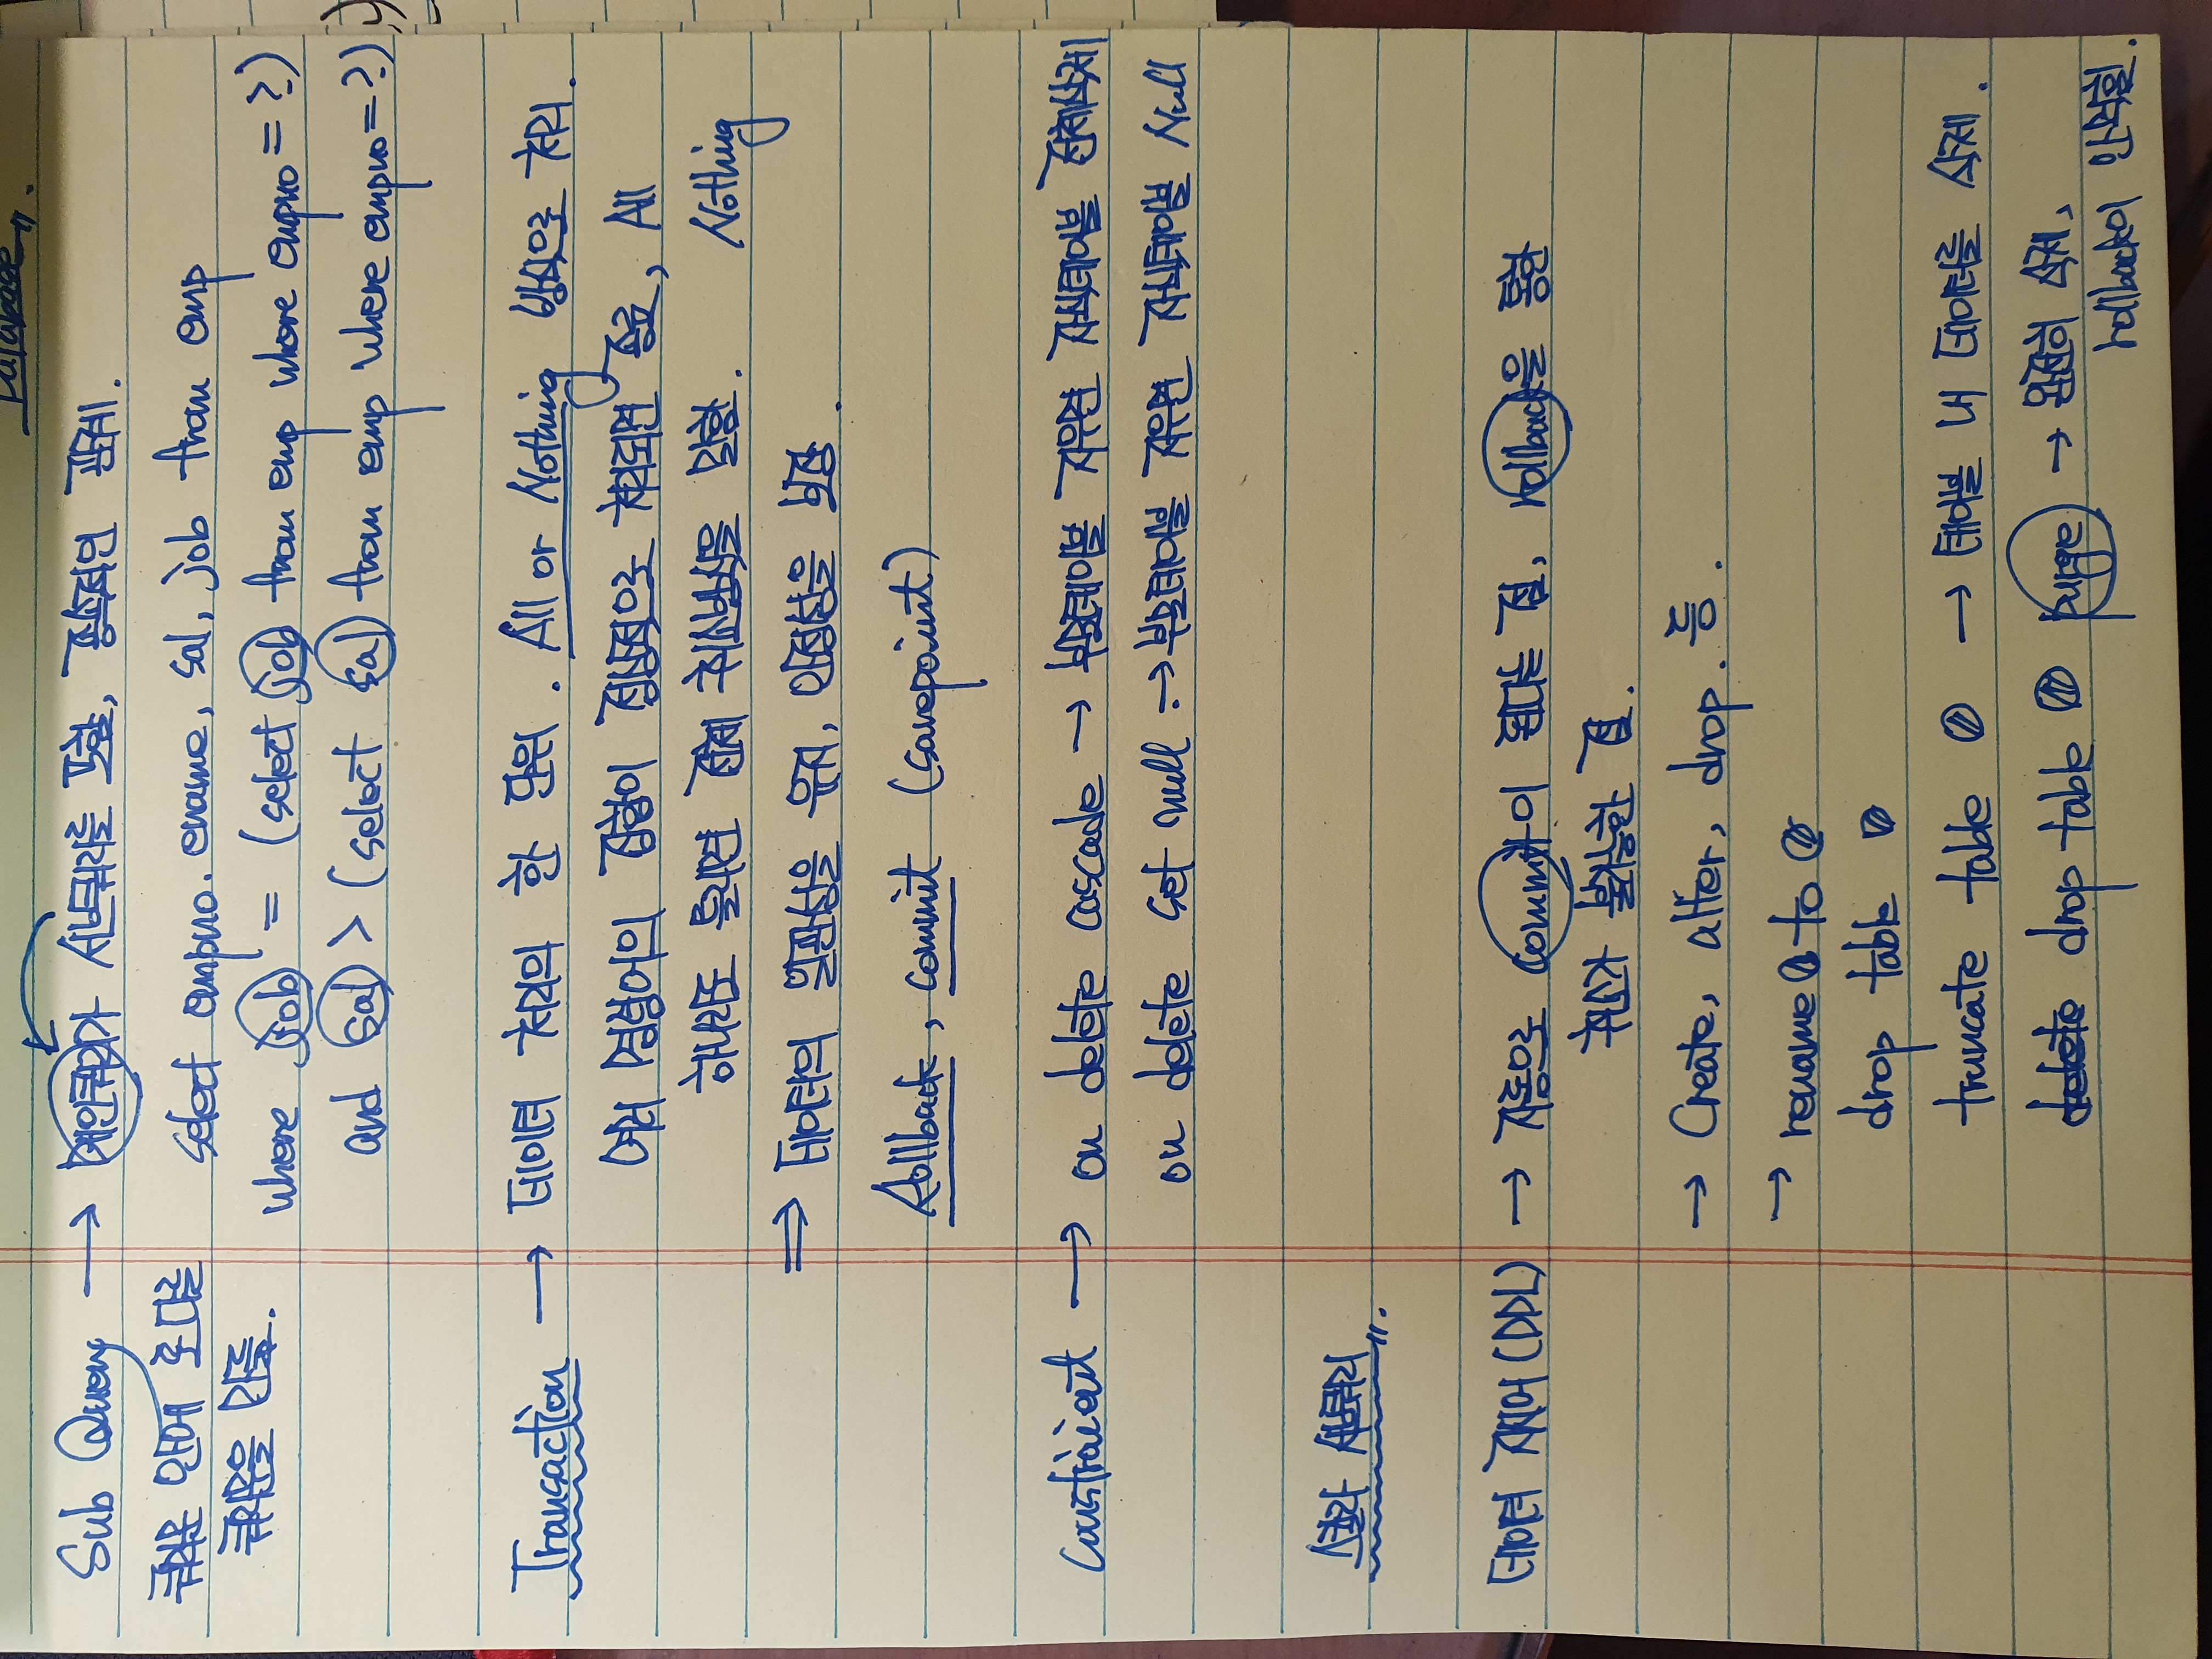 Database
Sub Query → 메인쿼리가 서브쿼리를 포함, 종속적인 관계.
쿼리문 안에 또 다를
쿼리문을 만듦.
select empno. ename, sal, job from emp
where job = (select job from emp where empno = ?)
and sal > (select sal from emp where empno = ?)
Transaction → 데이터 처리의 한 단위. All or Nothing 방식으로 처리.
여러 명령어의 집합이 정상적으로 처리되면 종료, All
하나라도 틀리면 전체 취소방식을 말함. Nothing
⇒ 데이터의 일관성을 유지, 안정성을 보장.
Rollback, commit (savepoint)
Constraient → on delete cascade → 부모테이블 지우면 자식테이블 전체삭제
on delete set null → 부모테이블 지우면 자식테이블 Null
스칼라 서브쿼리.
데이터 지시어(DDL) → 자동으로 commit이 된다는 점, rollback을 통한
취소가 불가능한 점.
→ Create, alter, drop. 등.
→ rename to
drop table
truncate table → 테이블 내 데이터를 삭제.
delete drop table purge → 완전히 삭제,
rollback이 안 먹힘.